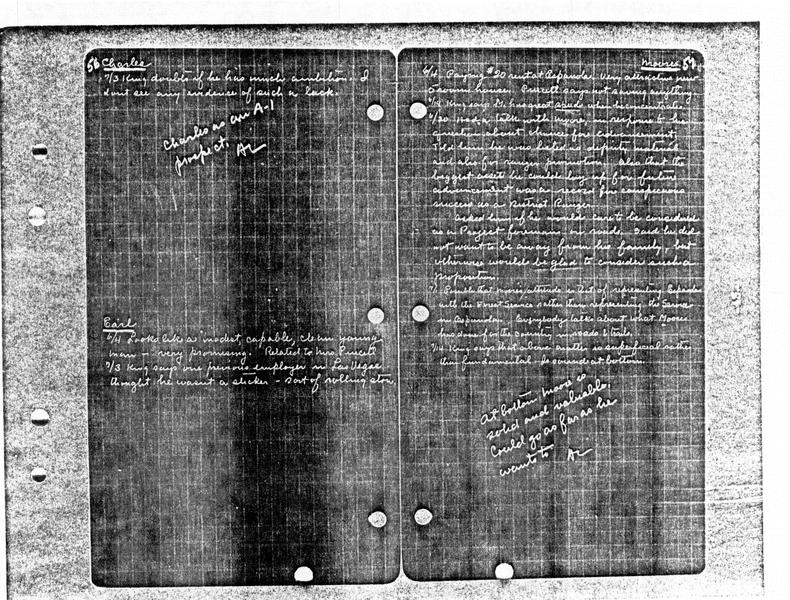 56 Charlee
7/3 King doubts if he has much ambition. I
dont see any evidence of such a lack.
Charles is an A-1
prospect. AL
Earl
6/4 Looks like a modest, capable, clean young
man – very promising. Related to Mrs. Pusett
7/3 King says one previous employer in Las Vegas
thought he wasn't a sticker – sort of rolling stone.
Moore 57
6/4 Paying $20 rent at Espanola. Very attractive new
room house. says not saving anything
King says Mr. has great when he concentrates.
6/20 Had a talk with Moore, in response to his
question about chances for advancement,
Told him he was listed as deputy material
and also for ranger promotion. Also that the
biggest asset he could lay up for future
advancement was a record for conspicuous
success as a District Ranger.
Asked him if he would care to be considered
as a Project foreman on roads. Said he did
not want to be away from his family, but
otherwise would be glad to consider such a
proposition.
7/1 Possible that Moores attitude is that of representing Espanola
with the Forest Service rather than representing the Service
in Espanola. Everybody talks about what Moore
has done for the country – roads & trails.
7/4 King says that above another is superficial rather
than fundamental. Is sound at bottom.
At bottom Moore is
solid and valuable.
Could go as far as he
wants to AL